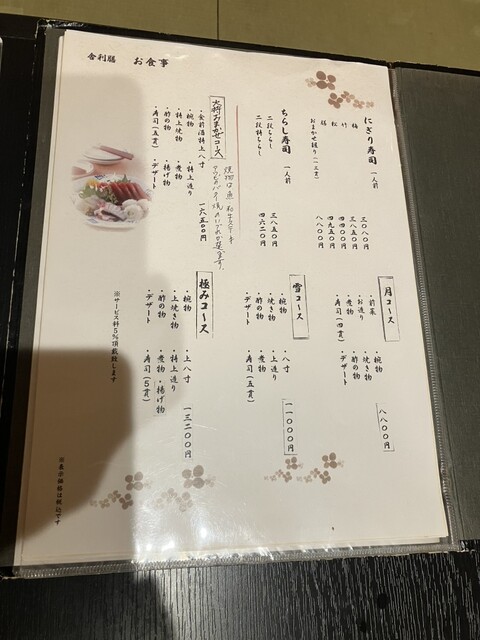 舎利膳 お食事
にぎり寿司 一人前
梅 三〇八〇円
竹 三八五〇円
松 四四〇〇円
膳 四九五〇円
おまかせ握り(十二貫) 八八〇〇円
ちらし寿司 一人前
二段ちらし 三八五〇円
二段特ちらし 四六二〇円
大将おまかせコース
・食前酒
・特上八寸
・椀物
・特上造り
・特上焼物
・煮物
・酢の物
・揚げ物
・寿司(五貫)
・デザート
一六五〇〇円
焼物は魚
和牛ステーキ
アワビのバター焼のいづれか選べます。
月コース
・前菜
・椀物
・お造り
・焼き物
・煮物
・酢の物
・寿司(四貫)
・デザート
八八〇〇円
雪コース
・椀物
・八寸
・焼き物
・上造り
・酢の物
・煮物
・デザート
・寿司(五貫)
一一〇〇〇円
極みコース
・椀物
・上八寸
・上焼き物
・特上造り
・酢の物
・煮物
・揚げ物
・デザート
・寿司(5貫)
一三二〇〇円
※サービス料5%頂戴致します
※表示価格は税込です